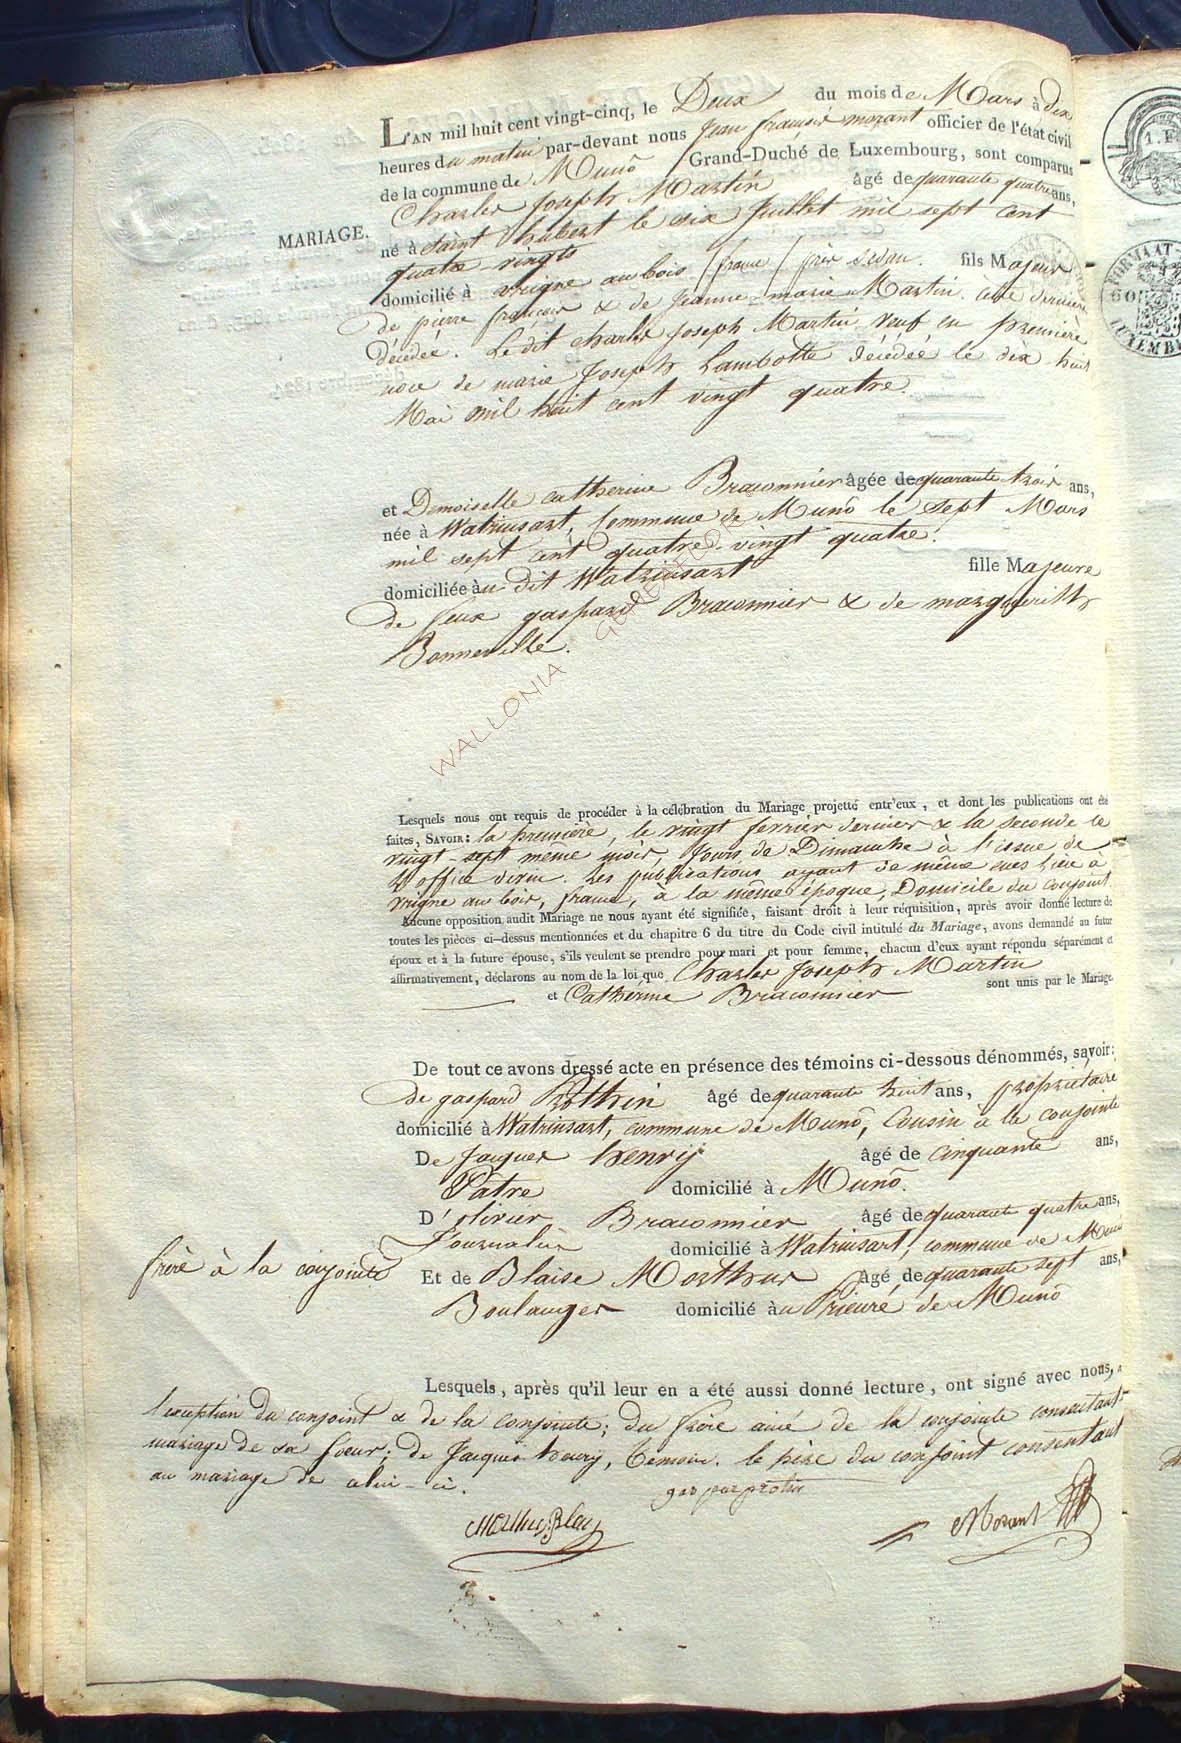 L'AN mil huit cent vingt-cinq, le Deux du mois de Mars à dix
heures du matin par-devant nous Jean françois morant officier de l'état civil
de la commune de Munô Grand-Duché de Luxembourg, sont comparus
MARIAGE.
Charles Joseph Martin âgé de quarante quatre ans,
né à Saint hubert le six Juillet mil sept cent
quatre-vingts
domicilié à vrigne au bois (france) près Sedan. fils Majeur
de pierre françois & de Jeanne-marie Martin. cette dernière
décédée. Le dit charles Joseph Martin veuf en première
noce de marie Joseph Lambotte décédée le dix huit
Mai mil huit cent vingt quatre.
et Demoiselle catherine Braconnier âgée de quarante trois ans,
née à Watrinsart, Commune de Munô le sept Mars
mil sept cent quatre-vingt quatre.
domiciliée au dit Watrinsart fille Majeure
de feux gaspard Braconnier & de margueritte
Bonneville.
WALLONIA
Lesquels nous ont requis de procéder à la célébration du Mariage projetté entr'eux, et dont les publications ont été
faites, SAVOIR: la première, le vingt fevrier dernier & la seconde le
vingt-sept même mois, Jours de Dimanche à l'issue de
l'office divin. Les publications ayant de même eues lieu à
vrigne au bois, france, à la même époque, Domicile du conjoint.
Aucune opposition audit Mariage ne nous ayant été signifiée, faisant droit à leur réquisition, après avoir donné lecture de
toutes les pièces ci-dessus mentionnées et du chapitre 6 du titre du Code civil intitulé du Mariage, avons demandé au futur
époux et à la future épouse, s'ils veulent se prendre pour mari et pour femme, chacun d'eux ayant répondu séparément et
affirmativement, déclarons au nom de la loi que Charles Joseph Martin
et Catherine Braconnier sont unis par le Mariage
De tout ce avons dressé acte en présence des témoins ci-dessous dénommés, savoir:
de gaspard Rothin âgé de quarante huit ans, propriétaire
domicilié à Watrinsart, commune de Munô, Cousin à la conjointe
De Jacques henry âgé de cinquante ans,
Pâtre domicilié à Munô.
D'olivier Braconnier âgé de quarante quatre ans,
Journalier domicilié à Watrinsart, commune de Munô
frère à la conjointe
Et de Blaise Marthus âgé de quarante sept ans,
Boulanger domicilié au Prieuré de Munô
Lesquels, après qu'il leur en a été aussi donné lecture, ont signé avec nous, à
l'exception du conjoint & de la conjointe; du frère ainé de la conjointe consentant
mariage de sa soeur; de Jacques henry, témoin. le père du conjoint consentant
au mariage de celui-ci.
Morant
1. F.
FORMAAT-
60
LUXEMB